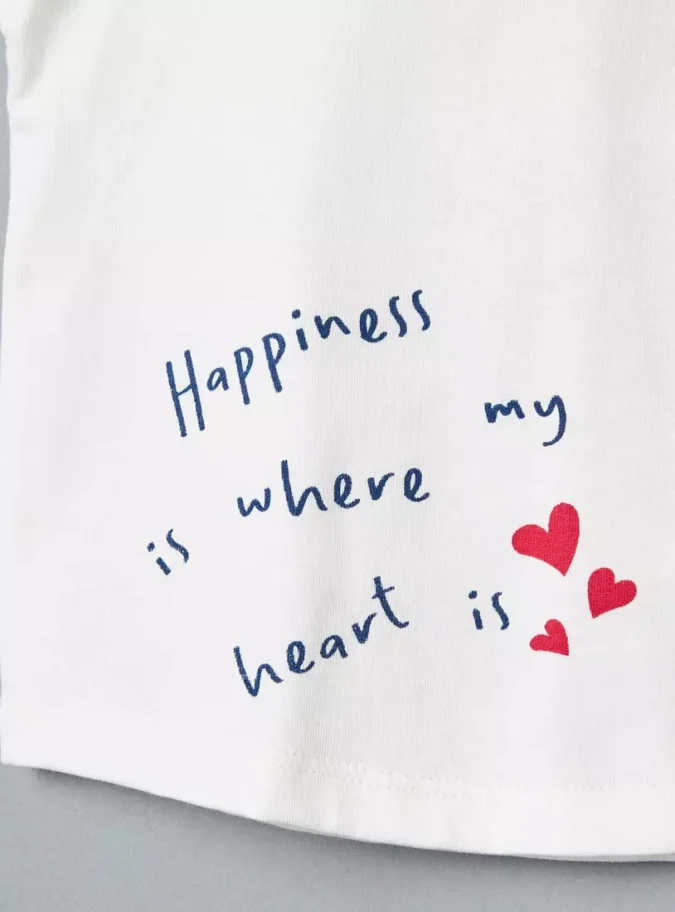 Happiness
is where my
heart is